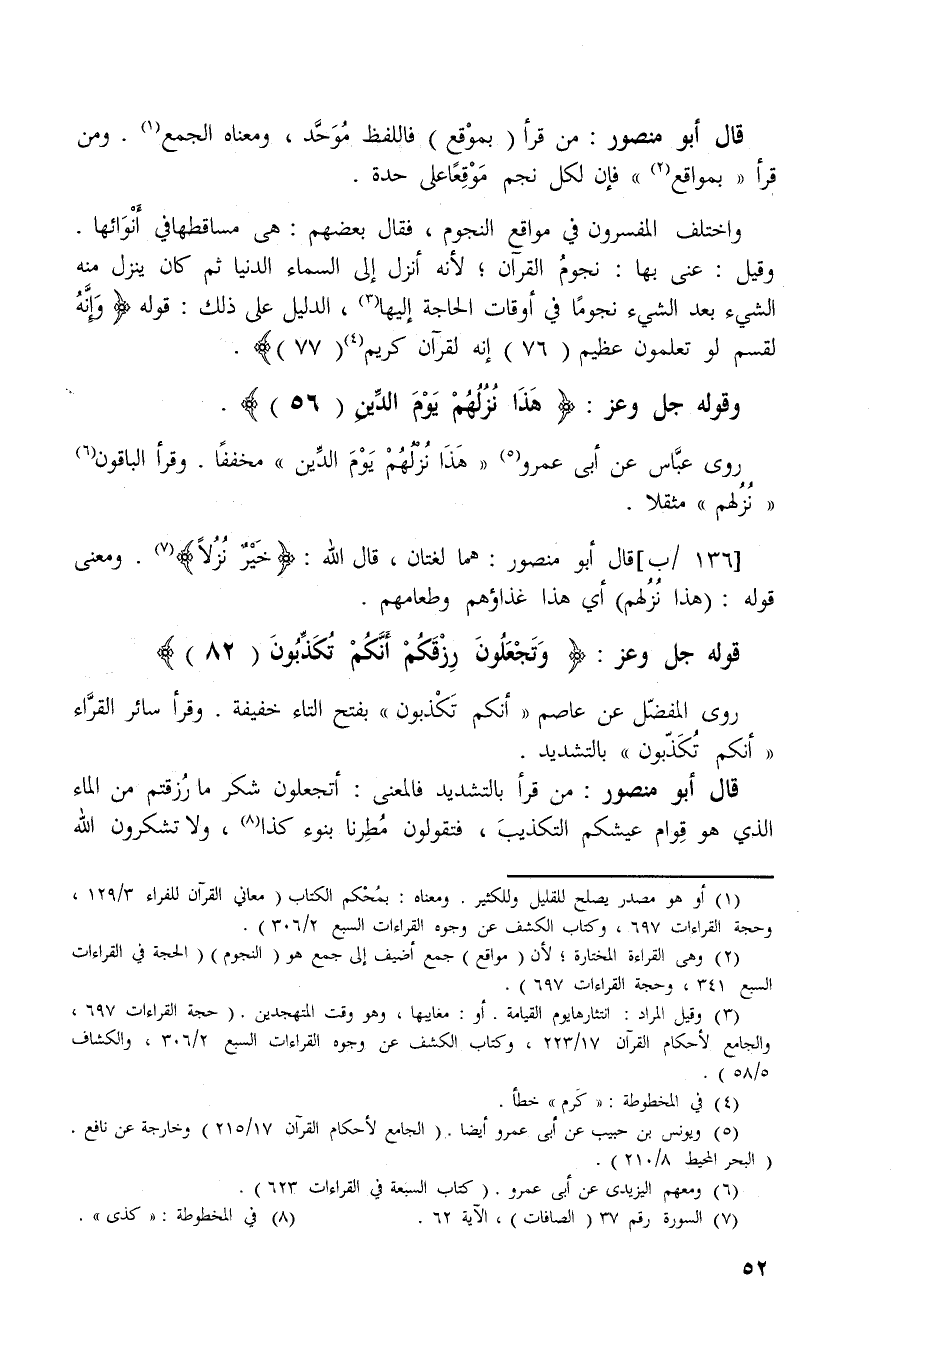 قال أبو منصور : من قرأ ( بموْقع ) فاللفظ مُوَحَّد ، ومعناه الجمع(١) . ومن
قرأ « بمواقع(٢) » فإن لكل نجم مَوْقِعًاعلى حدة .
واختلف المفسرون في مواقع النجوم ، فقال بعضهم : هى مساقطهافي أَنْوَائها .
وقيل : عنى بها : نجومُ القرآن ؛ لأنه أنزل إلى السماء الدنيا ثم كان ينزل منه
الشيء بعد الشيء نجومًا في أوقات الحاجة إليها(٣) ، الدليل على ذلك : قوله ﴿ وَإِنَّهُ
لقسم لو تعلمون عظيم ( ٧٦ ) إنه لقرآن كريم(٤)( ٧٧ )﴾ .
وقوله جل وعز : ﴿ هَذَا نُزُلُهُمْ يَوْمَ الدِّينِ ( ٥٦ ) ﴾ .
روى عبَّاس عن أبى عمرو(٥) « هَذَا نُزْلُهُمْ يَوْمَ الدِّين » مخففًا . وقرأ الباقون(٦)
« نُزُلهم » مثقلا .
[١٣٦ /ب]قال أبو منصور : هما لغتان ، قال الله : ﴿خَيْرٌ نُزُلاً﴾(٧) . ومعنى
قوله : (هذا نُزُلهم) أي هذا غذاؤهم وطعامهم .
قوله جل وعز : ﴿ وَتَجْعَلُونَ رِزْقَكُمْ أَنَّكُمْ تُكَذِّبُونَ ( ٨٢ ) ﴾
روى المفضّل عن عاصم « أنكم تَكْذبون » بفتح التاء خفيفة . وقرأ سائر القرَّاء
« أنكم تُكَذّبون » بالتشديد .
قال أبو منصور : من قرأ بالتشديد فالمعنى : أتجعلون شكر ما رُزقتم من الماء
الذي هو قِوام عيشكم التكذيبَ ، فتقولون مُطِرنا بنوء كذا(٨) ، ولا تشكرون الله
(١) أو هو مصدر يصلح للقليل وللكثير . ومعناه : بمُحْكم الكتاب ( معاني القرآن للفراء ١٢٩/٣ ،
وحجة القراءات ٦٩٧ ، وكتاب الكشف عن وجوه القراءات السبع ٣٠٦/٢ ) .
(٢) وهى القراءة المختارة ؛ لأن ( مواقع ) جمع أضيف إلى جمع هو ( النجوم ) ( الحجة في القراءات
السبع ٣٤١ ، وحجة القراءات ٦٩٧ ) .
(٣) وقيل المراد : انتثارهايوم القيامة . أو : مغايبها ، وهو وقت المتهجدين . ( حجة القراءات ٦٩٧ ،
والجامع لأحكام القرآن ٢٢٣/١٧ ، وكتاب الكشف عن وجوه القراءات السبع ٣٠٦/٢ ، والكشاف
٥٨/٥ ) .
(٤) في المخطوطة : « كَرم » خطأ .
(٥) ويونس بن حبيب عن أبى عمرو أيضا . ( الجامع لأحكام القرآن ٢١٥/١٧ ) وخارجة عن نافع .
( البحر المحيط ٢١٠/٨ ) .
(٦) ومعهم اليزيدى عن أبى عمرو . ( كتاب السبعة في القراءات ٦٢٣ ) .
(٧) السورة رقم ٣٧ ( الصافات ) ، الآية ٦٢ . (٨) في المخطوطة : « كذى » .
٥٢